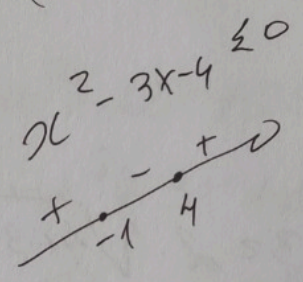 x² - 3x - 4 ≤ 0
+ - +
-1 4